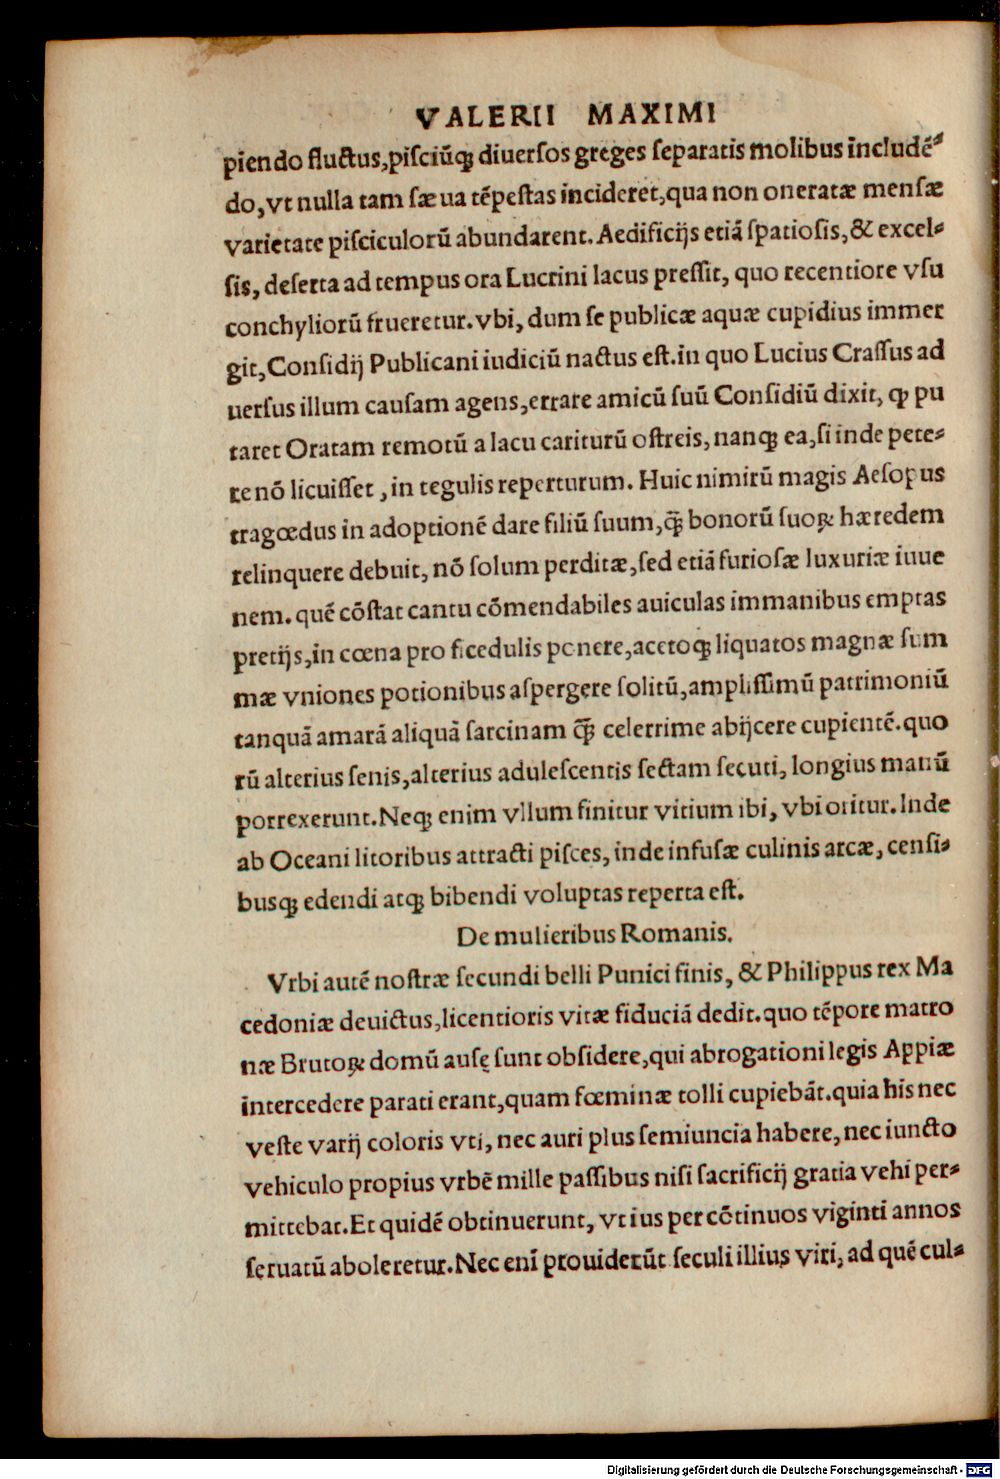 VALERII MAXIMI
piendo fluctus, pisciūqꝫ diuersos greges separatis molibus includē⸗
do, vt nulla tam sæua tēpestas incideret, qua non oneratæ mensæ
varietate pisciculorū abundarent. Aedificijs etiā spatiosis, & excel⸗
sis, deserta ad tempus ora Lucrini lacus pressit, quo recentiore vsu
conchyliorū frueretur. vbi, dum se publicæ aquæ cupidius immer
git, Considij Publicani iudiciū nactus est. in quo Lucius Crassus ad
uersus illum causam agens, errare amicū suū Considiū dixit, ꝙ pu
taret Oratam remotū a lacu cariturū ostreis, nanqꝫ ea, si inde pete⸗
re nō licuisset, in tegulis reperturum. Huic nimirū magis Aesopus
tragœdus in adoptionē dare filiū suum, q̄ꝫ bonorū suoꝝ hæredem
relinquere debuit, nō solum perditæ, sed etiā furiosæ luxuriæ iuue
nem. quē cōstat cantu cōmendabiles auiculas immanibus emptas
pretijs, in cœna pro ficedulis ponere, acetoqꝫ liquatos magnæ sum
mæ vniones potionibus aspergere solitū, amplissimū patrimoniū
tanquā amarā aliquā sarcinam q̄ꝫ celerrime abijcere cupientē. quo
rū alterius senis, alterius adulescentis sectam secuti, longius manū
porrexerunt. Neqꝫ enim vllum finitur vitium ibi, vbi oritur. Inde
ab Oceani litoribus attracti pisces, inde infusæ culinis arcæ, censi⸗
busqꝫ edendi atqꝫ bibendi voluptas reperta est.
De mulieribus Romanis.
Vrbi autē nostræ secundi belli Punici finis, & Philippus rex Ma
cedoniæ deuictus, licentioris vitæ fiduciā dedit. quo tēpore matro
næ Brutoꝝ domū ausę sunt obsidere, qui abrogationi legis Appiæ
intercedere parati erant, quam fœminæ tolli cupiebāt. quia his nec
veste varij coloris vti, nec auri plus semiuncia habere, nec iuncto
vehiculo propius vrbē mille passibus nisi sacrificij gratia vehi per⸗
mittebat. Et quidē obtinuerunt, vt ius per cōtinuos viginti annos
seruatū aboleretur. Nec enī prouiderūt seculi illius viri, ad quē cul⸗
Digitalisierung gefördert durch die Deutsche Forschungsgemeinschaft - DFG